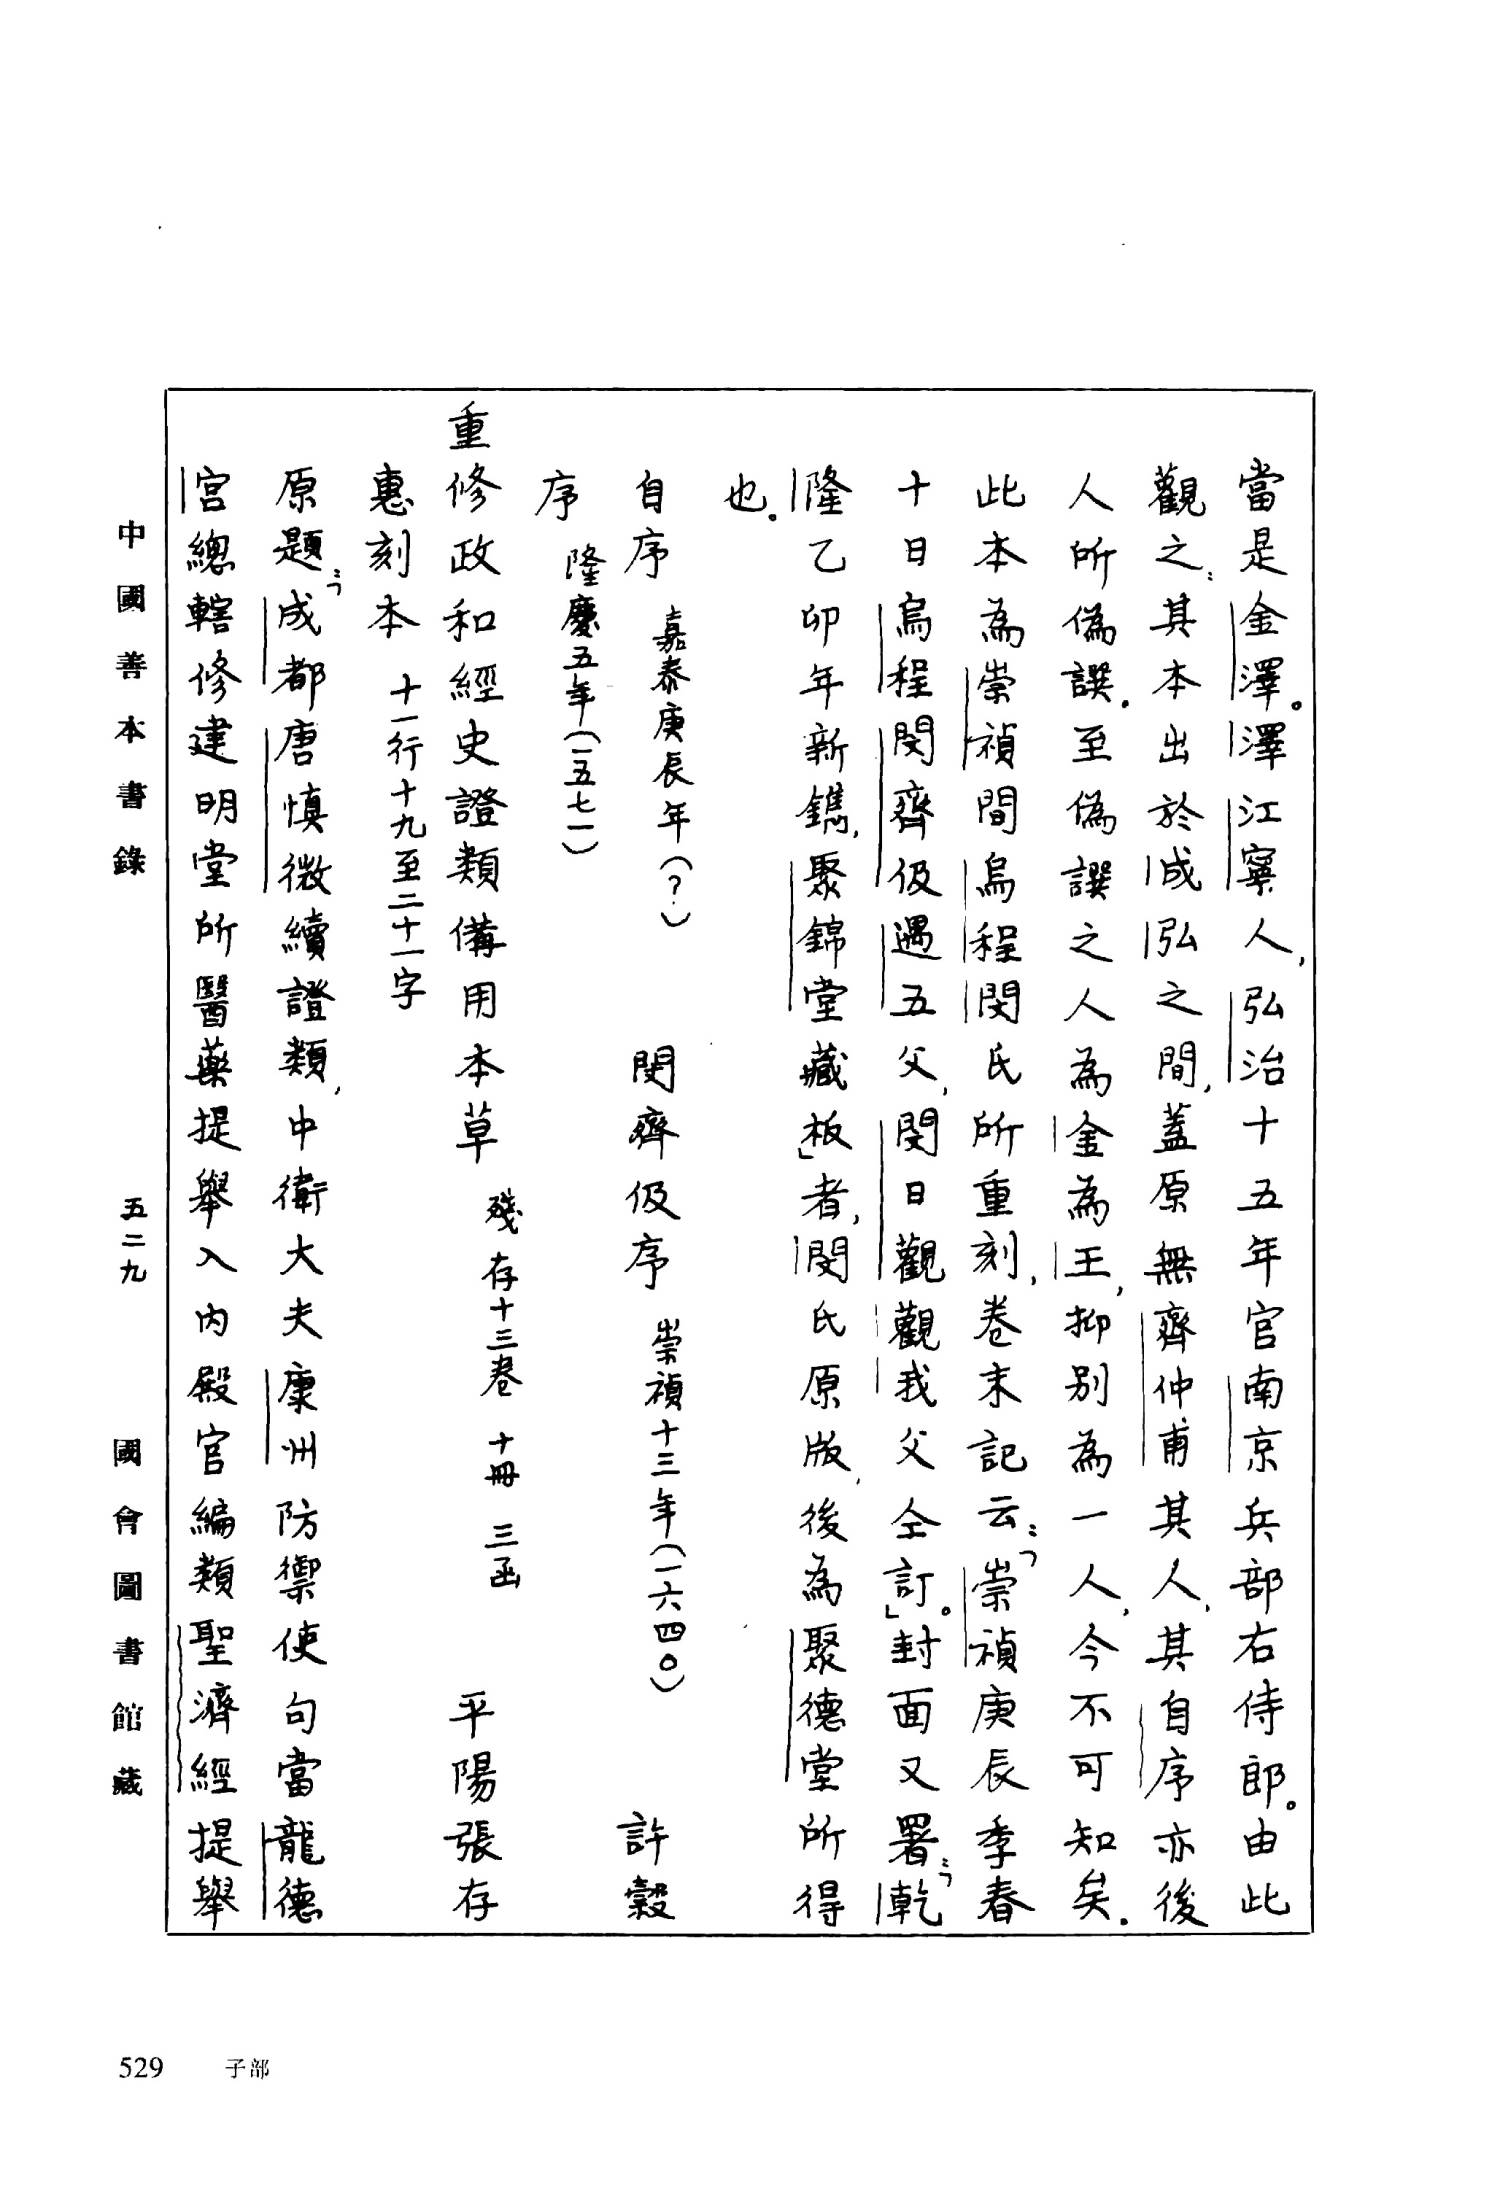 當是金澤。澤江寧人,弘治十五年官南京兵部右侍郎。由此
觀之:其本出於成弘之間,蓋原無齊仲甫其人,其自序亦後
人所偽譔.至偽譔之人為金為王,抑別為一人,今不可知矣.
此本為崇禎間烏程閔氏所重刻,卷末記云:「崇禎庚辰季春
十日烏程閔齊伋遇五父,閔日觀觀我父仝訂」。封面又署:「乾
隆乙卯年新鐫,聚錦堂藏板」者,閔氏原版,後為聚德堂所得
也。
自序 嘉泰庚辰年(?) 閔齊伋序 崇禎十三年(一六四〇) 許穀
序 隆慶五年(一五七一)
重修政和經史證類備用本草 殘存十三卷 十冊 三函 平陽張存
惠刻本 十一行十九至二十一字
原題:「成都唐慎微續證類,中衛大夫康州防禦使句當龍德
宮總轄修建明堂所醫藥提舉入內殿官編類聖濟經提舉
中國善本書錄 五二九 國會圖書館藏
529 子部